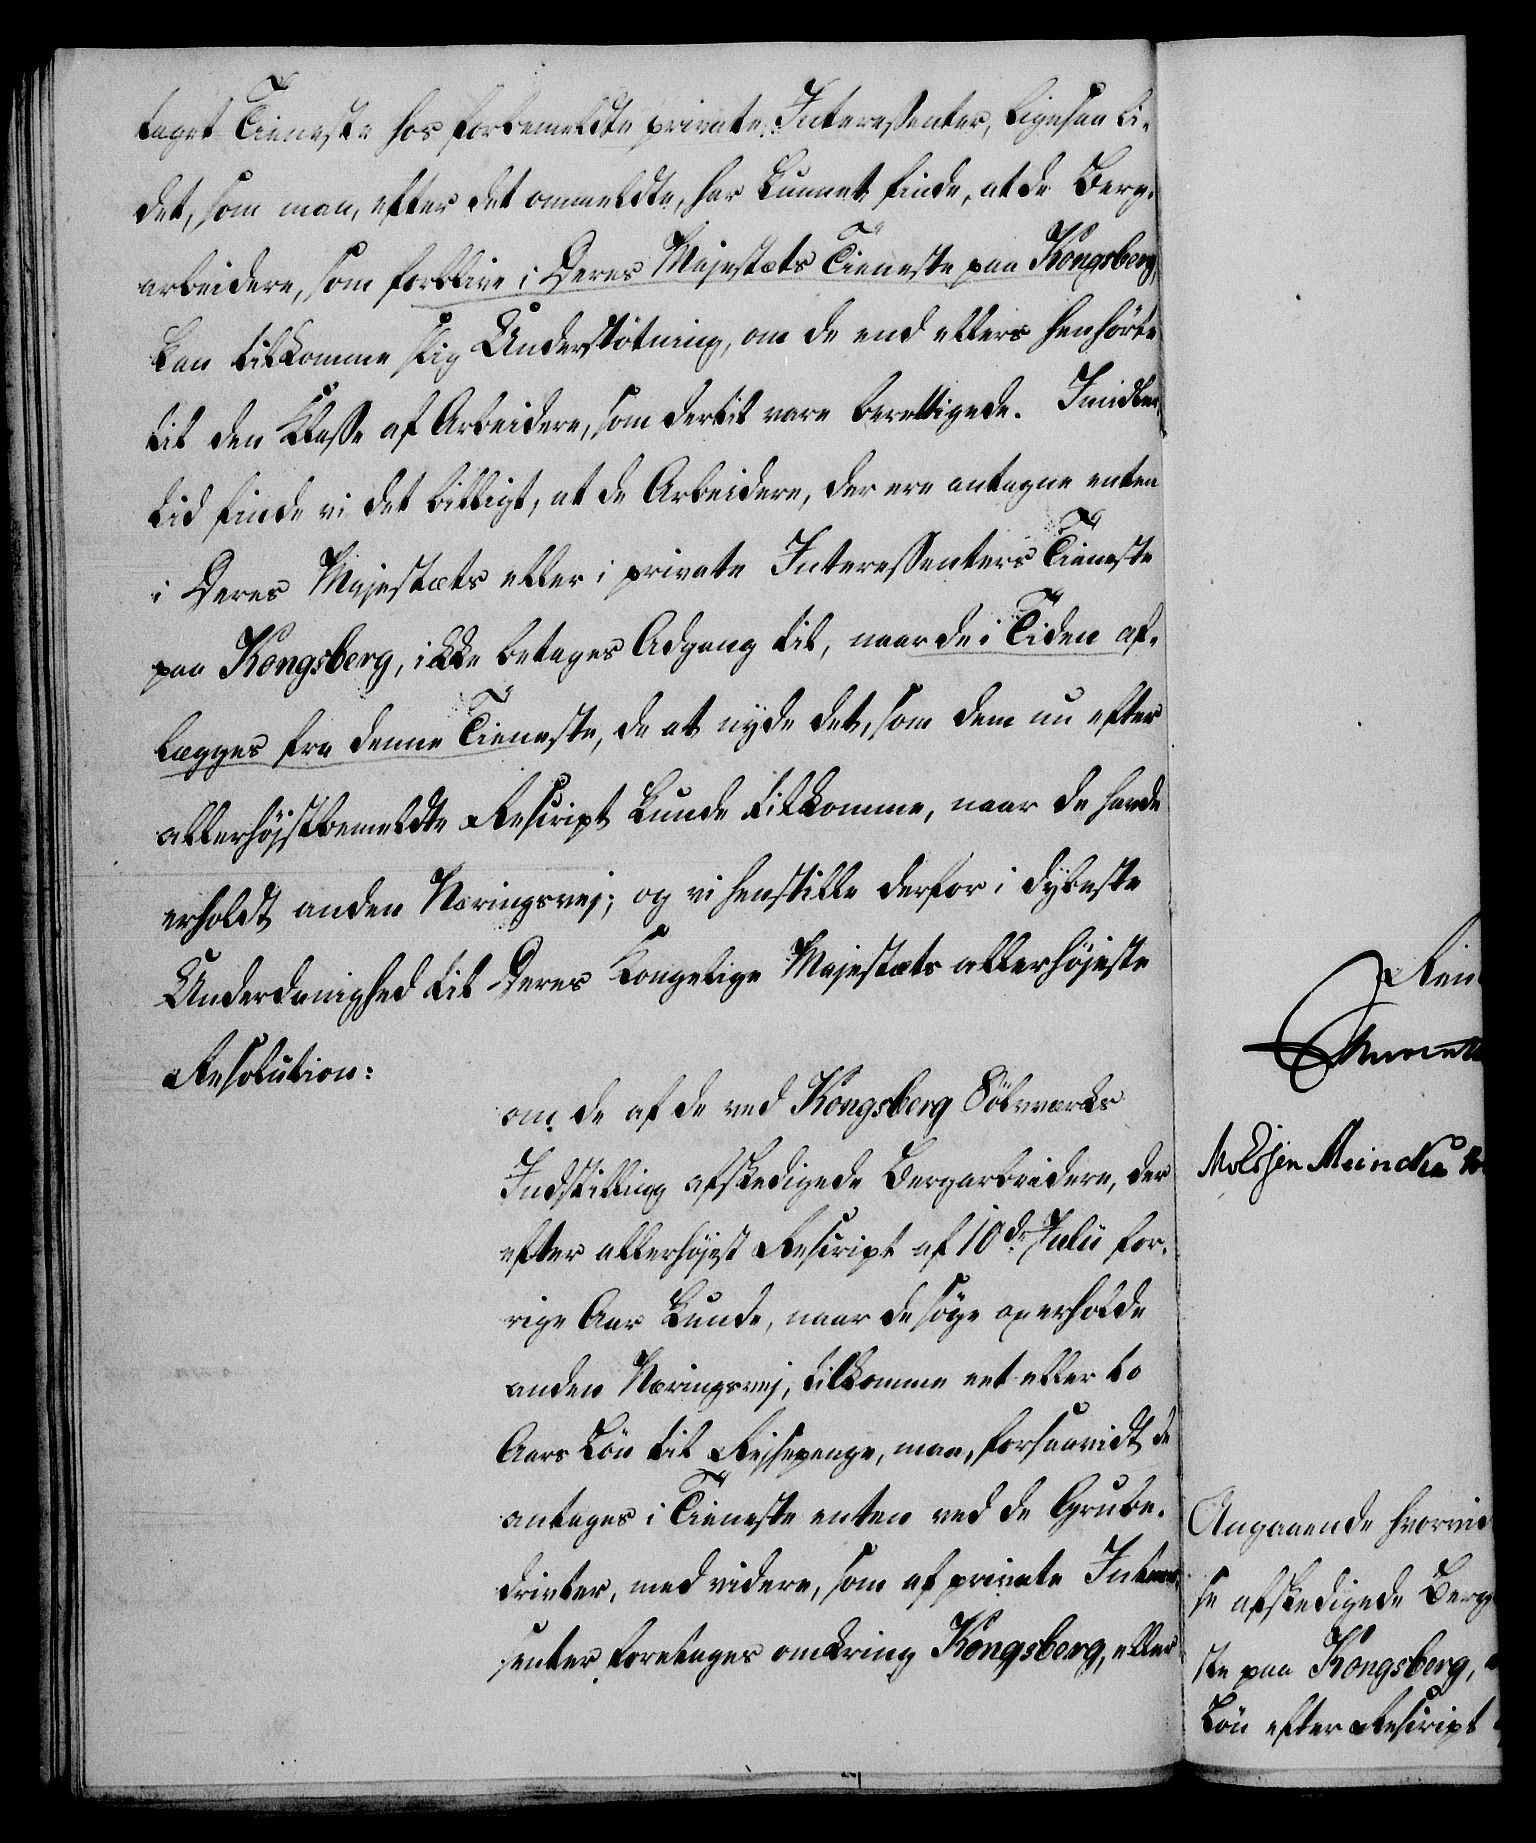 taget Tieneste hos forbemeldte private Interessenter, ligesaa li-
det, som man, efter det ommeldte, har kunnet finde, at de Berg-
arbeidere, som forblive i Deres Majestæts Tieneste paa Kongsberg,
kan tilkomme slig Understötning, om de end ellers henhörte
til den Klasse af Arbeidere, som dertil vare berettigede. Imidler-
tid finde vi det billigt, at de Arbeidere, der ere antagne enten
i Deres Majestæts eller i private Interessenters Tieneste
paa Kongsberg, ikke betages Adgang til, naar de i Tiden af-
lægges fra denne Tieneste, da at nyde det, som dem nu efter
allerhöjstbemeldte Rescript kunde tilkomme, naar de havde
erholdt anden Næringsvej; og vi henstille derfor i dybeste
Underdanighed til Deres Kongelige Majestæts allerhöjeste
Resolution:
om de af de ved Kongsberg Sölvværks
Indstilling afskedigede Bergarbeidere, der
efter allerhöjest Rescript af 10de Julii for-
rige Aar kunde, naar de söge og erholde
anden Næringsvej, tilkomme eet eller to
Aars Lön til Rejsepenge, maa, forsaavidt de
antages i Tieneste enten ved de Grube-
drivter, med videre, som af private Interes-
senter foretages omkring Kongsberg, eller
Ren
Meincke
Angaaende hvorvid
se afskedigede Berg
ste paa Kongsberg,
Lön efter Rescript